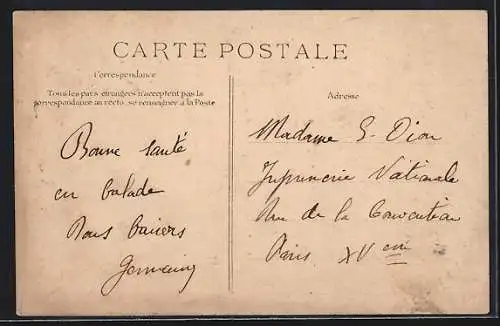 CARTE POSTALE
Correspondance
Tous les pays étrangers n'acceptent pas la
correspondance au recto, se renseigner à la Poste
Adresse
Bonne santé
en balade
Bons baisers
Germain
Madame E. Dion
Imprimerie Nationale
Rue de la Convention
Paris XVème